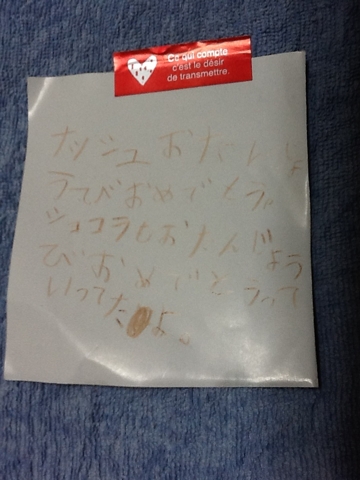 Ce qui compte
c'est le désir
de transmettre.
ナッシュ おたんじょ
うびおめでとう。
ショコラもおたんじょう
びおめでとうって
いってたよ。